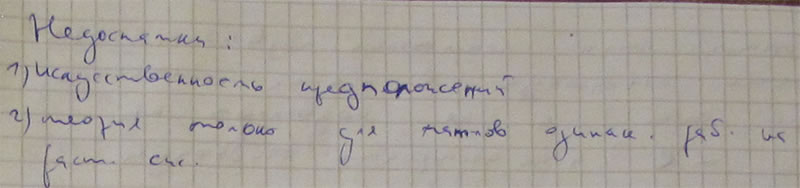 Недостатки:
1) искусственность предположений
2) теория только для одинак. раб. на
раст. сис.